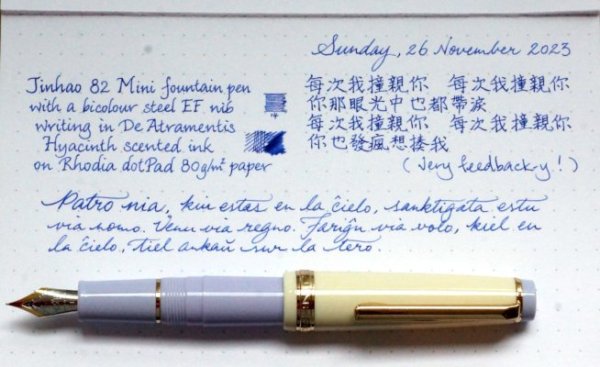 Sunday, 26 November 2023
Jinhao 82 Mini fountain pen
with a bicolour steel EF nib
writing in De Atramentis
Hyacinth scented ink
on Rhodia dotPad 80g/m² paper
每次我撞親你 每次我撞親你
你那眼光中也都帶淚
每次我撞親你 每次我撞親你
你也發瘋想揍我
(Very feedback-y!)
Patro nia, kiu estas en la ĉielo, sanktigata estu
via nomo. Venu via regno. Fariĝu via volo, kiel en
la ĉielo, tiel ankaŭ sur la tero.